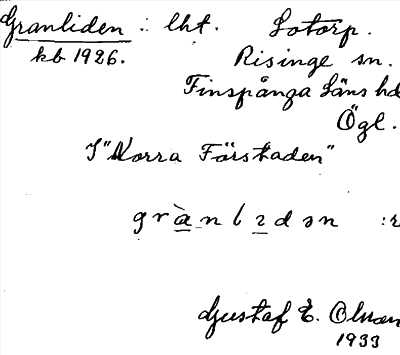 Granliden : lht. Lotorp.
kb 1926. Risinge sn.
Finspånga Läns hd
Ögl.
I "Norra Förstaden"
grànlɪdən :
Gustaf E. Olsson
1933